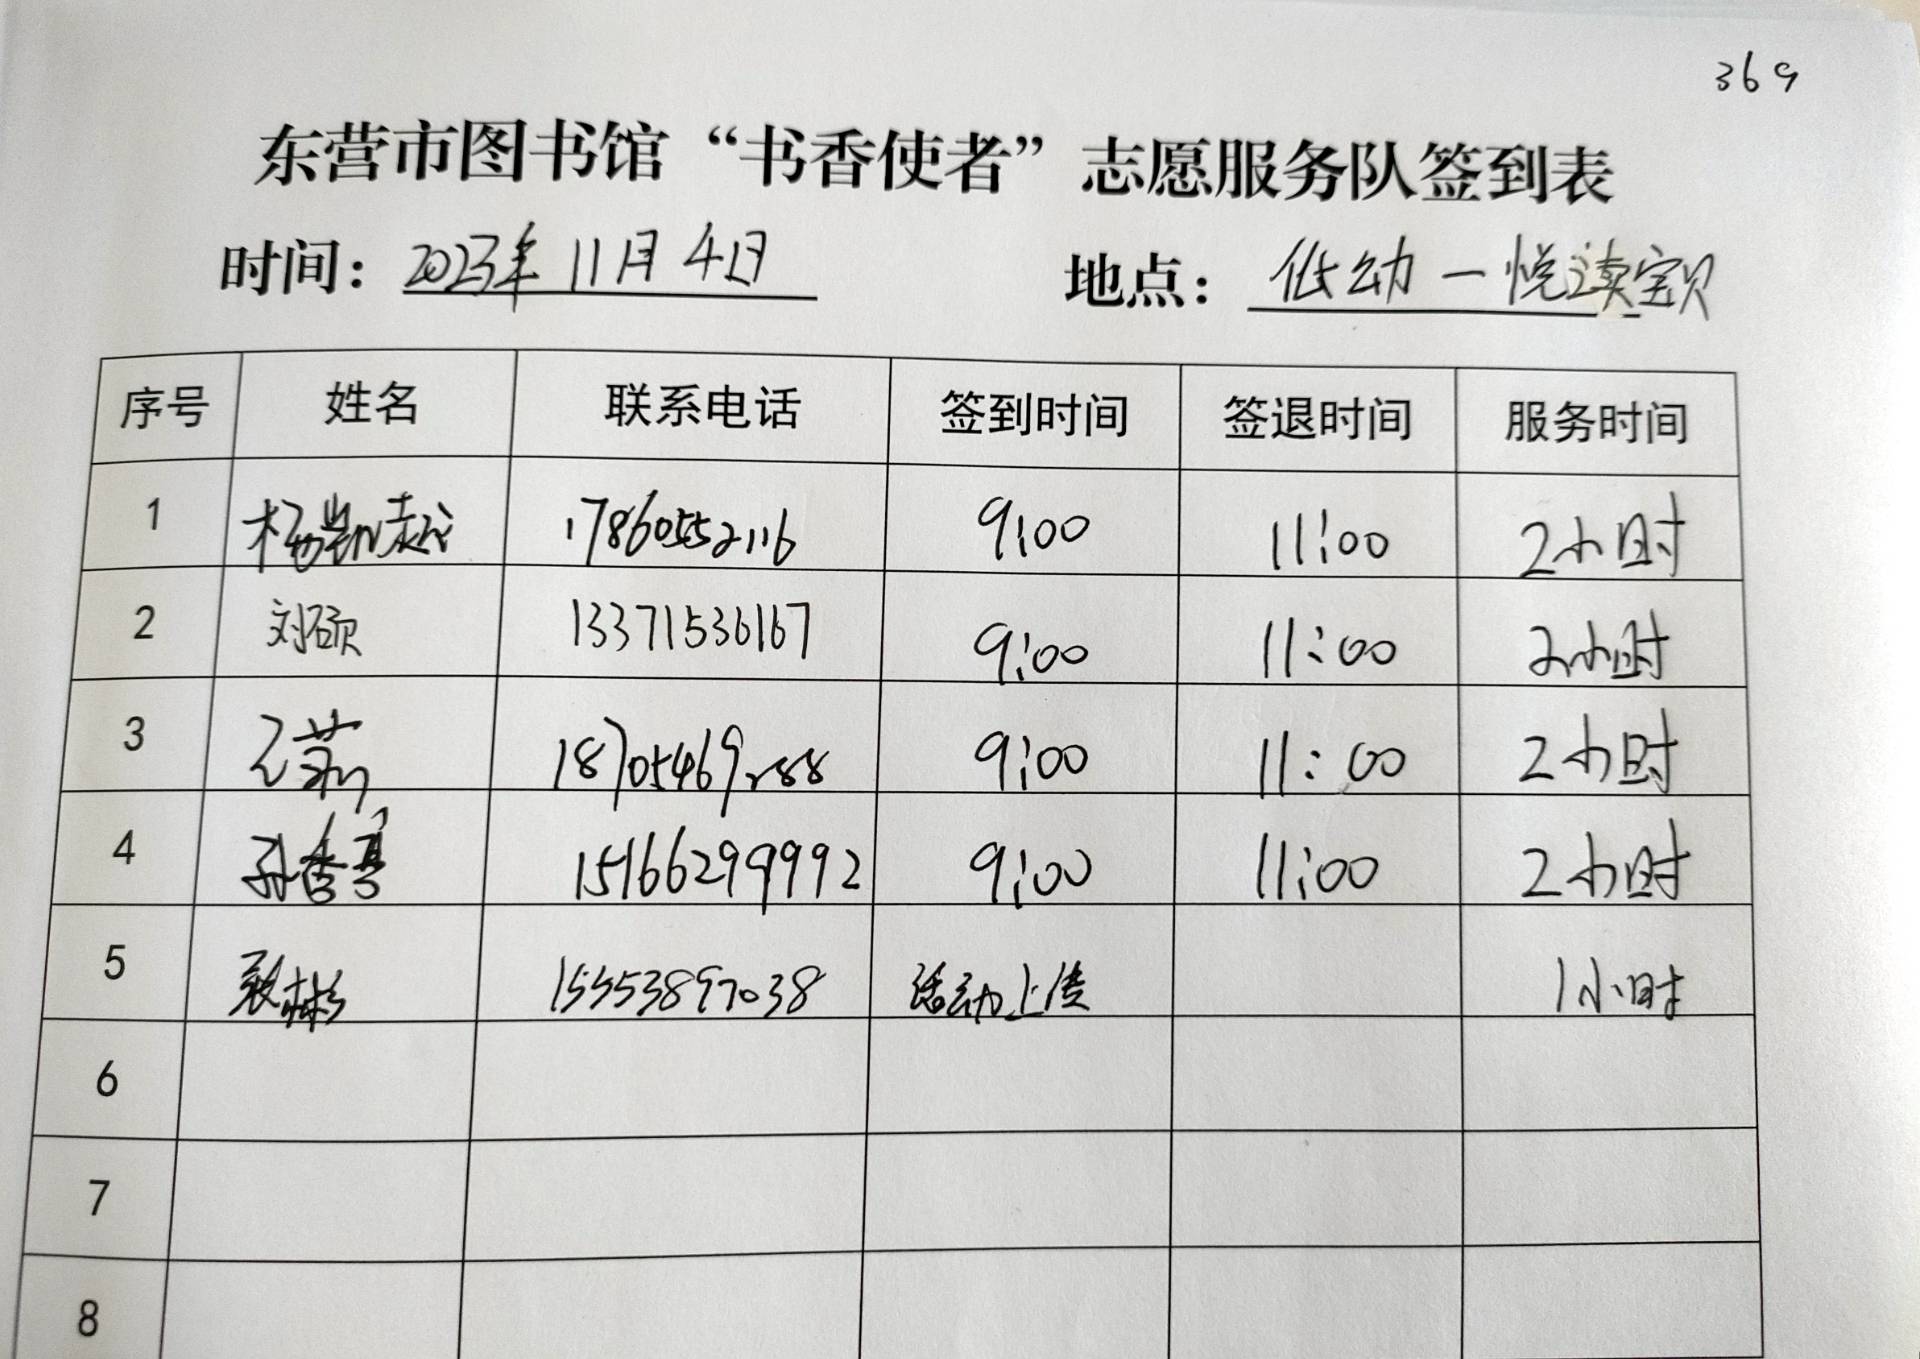 369
东营市图书馆“书香使者”志愿服务队签到表
时间：2023年11月4日 地点：低幼一悦读宝贝
序号 姓名 联系电话 签到时间 签退时间 服务时间
1 杨凯越 17860552116 9:00 11:00 2小时
2 刘硕 13371536167 9:00 11:00 2小时
3 18705469288 9:00 11:00 2小时
4 孙春青 15166299992 9:00 11:00 2小时
5 张彬 15553897038 活动上传 1小时
6
7
8